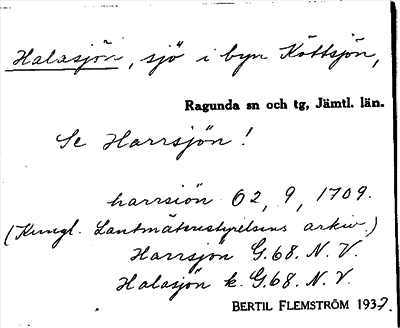 Halasjön, sjö i byn Köttsjön,
Ragunda sn och tg, Jämtl. län.
Se Harrsjön!
harrsiön 62, 9, 1709.
(Kungl. Lantmäteristyrelsens arkiv.)
Harrsjön G.68. N. V.
Halasjön k. G.68. N. V.
BERTIL FLEMSTRÖM 1937.